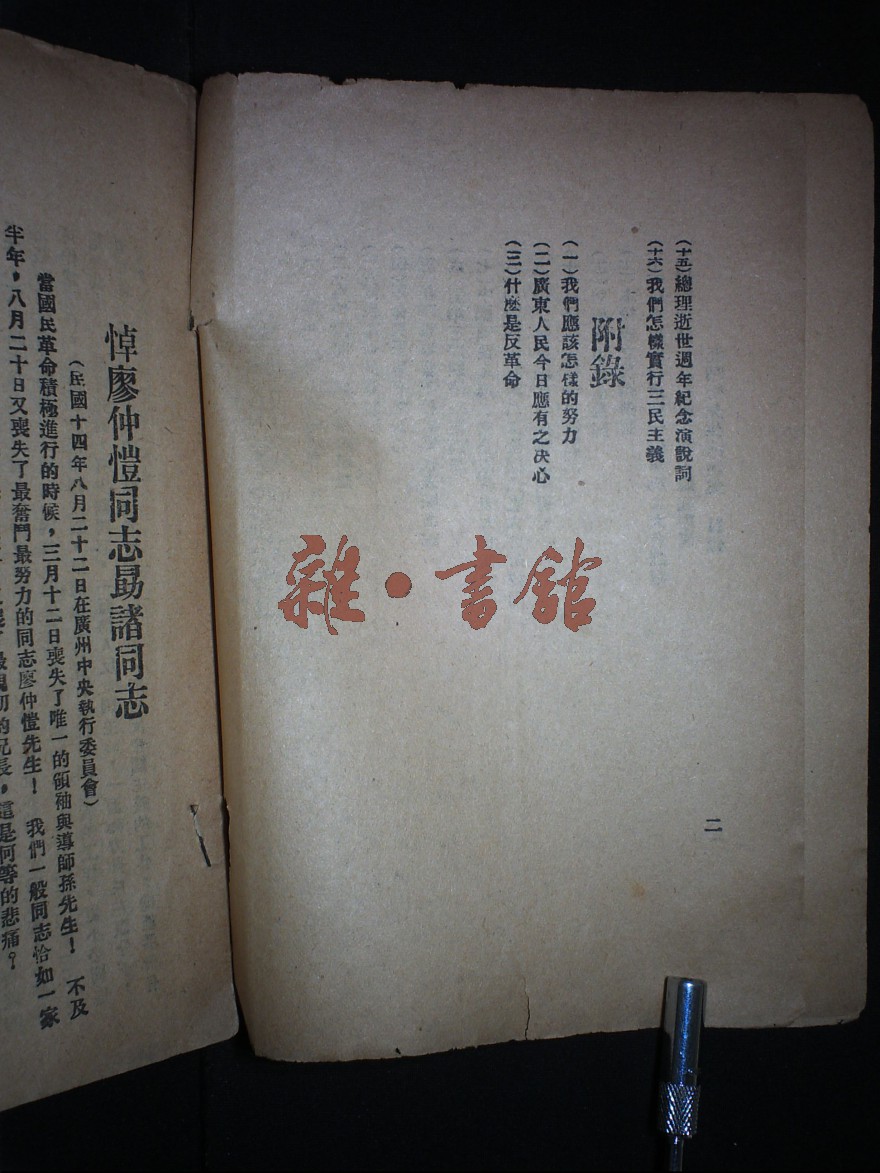 (十五)總理逝世週年紀念演說詞
(十六)我們怎樣實行三民主義
附錄
(一)我們應該怎樣的努力
(二)廣東人民今日應有之决心
(三)什麼是反革命
二
雜·書館
悼廖仲愷同志勗諸同志
(民國十四年八月二十二日在廣州中央執行委員會)
當國民革命積極進行的時候,三月十二日喪失了唯一的領袖與導師孫先生! 不及
半年,八月二十日又喪失了最奮鬥最努力的同志廖仲愷先生! 我們一般同志恰如一家
的兄長,這是何等的悲痛。